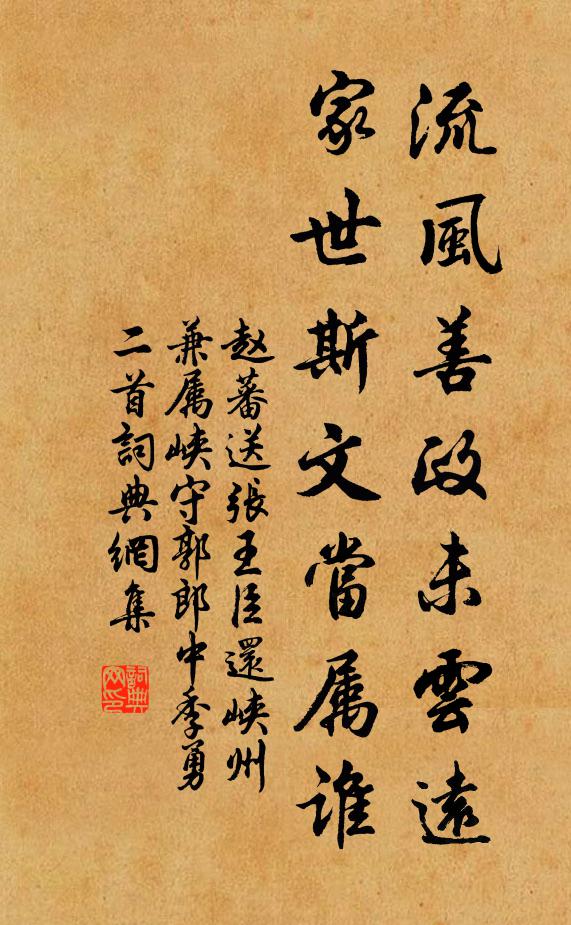 流風善政未雲遠
家世斯文當属誰
赵蕃送張王臣還峽州
兼属峽守郭郎中季勇
二首詞典網集
詞典网印